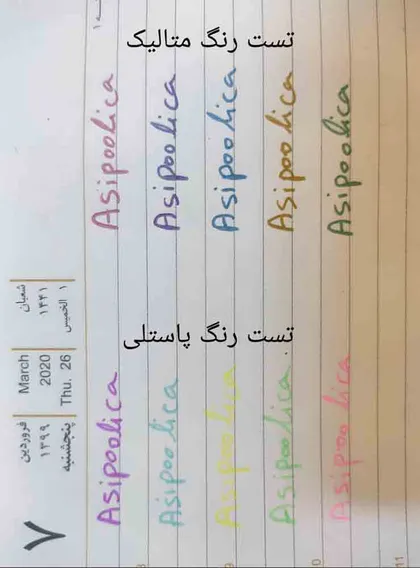 تست رنگ متالیک
Asipoolica
Asipoolica
Asipoolica
Asipoolica
Asipoolica
تست رنگ پاستلی
Asipoolica
Asipoolica
Asipoolica
Asipoolica
Asipoolica
۷
فروردین
۱۳۹۹
پنجشنبه
March
2020
Thu. 26
شعبان
۱۴۴۱
۱ الخمیس
8
9
10
11